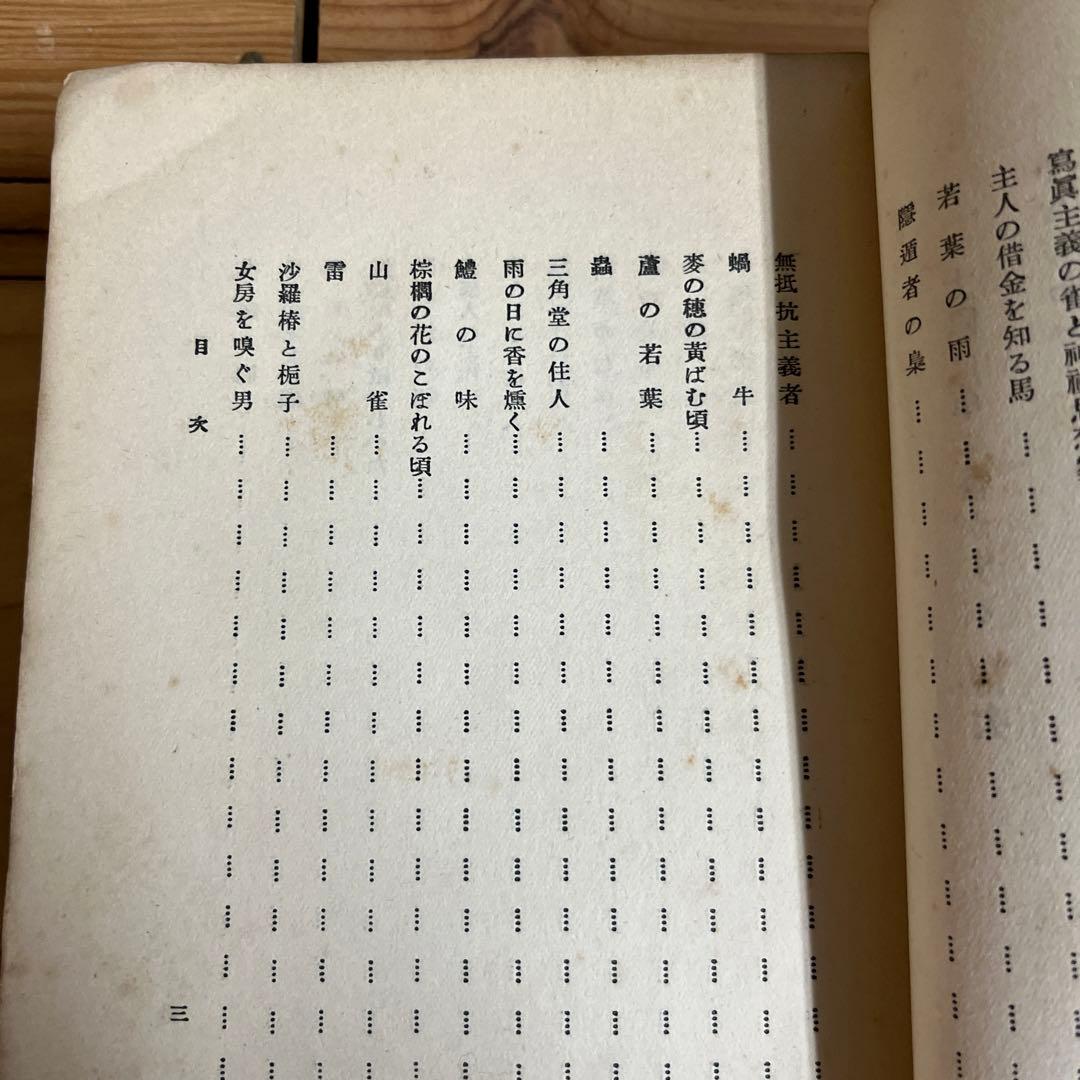 寫眞主義の雀と
主人の借金を知る馬
若葉の雨
隱遁者の梟
無抵抗主義者
蝸牛
麥の穗の黄ばむ頃
蘆の若葉
蟲
三角堂の住人
雨の日に香を燻く
鱧の味
棕櫚の花のこぼれる頃
山雀
雷
沙羅椿と梔子
女房を嗅ぐ男
目次
三